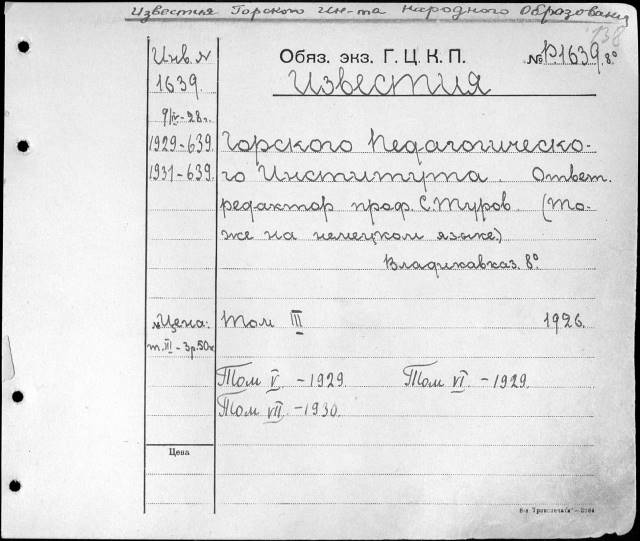 Известия Горского Ин-та Народного Образования
138
Инв. №
1639.
9/IV-28г.
1929-639.
1931-639.
Обяз. экз. Г. Ц. К. П.
№ Р1639. 8°
Известия
Горского Педагогическо-
го Института. Ответ.
редактор проф. С. Туров. (То-
же на немецком языке)
Владикавказ. 8°
Цена:
т. III - 3р. 50к
Том III 1926.
Том V - 1929. Том VI - 1929.
Том VII - 1930.
Цена